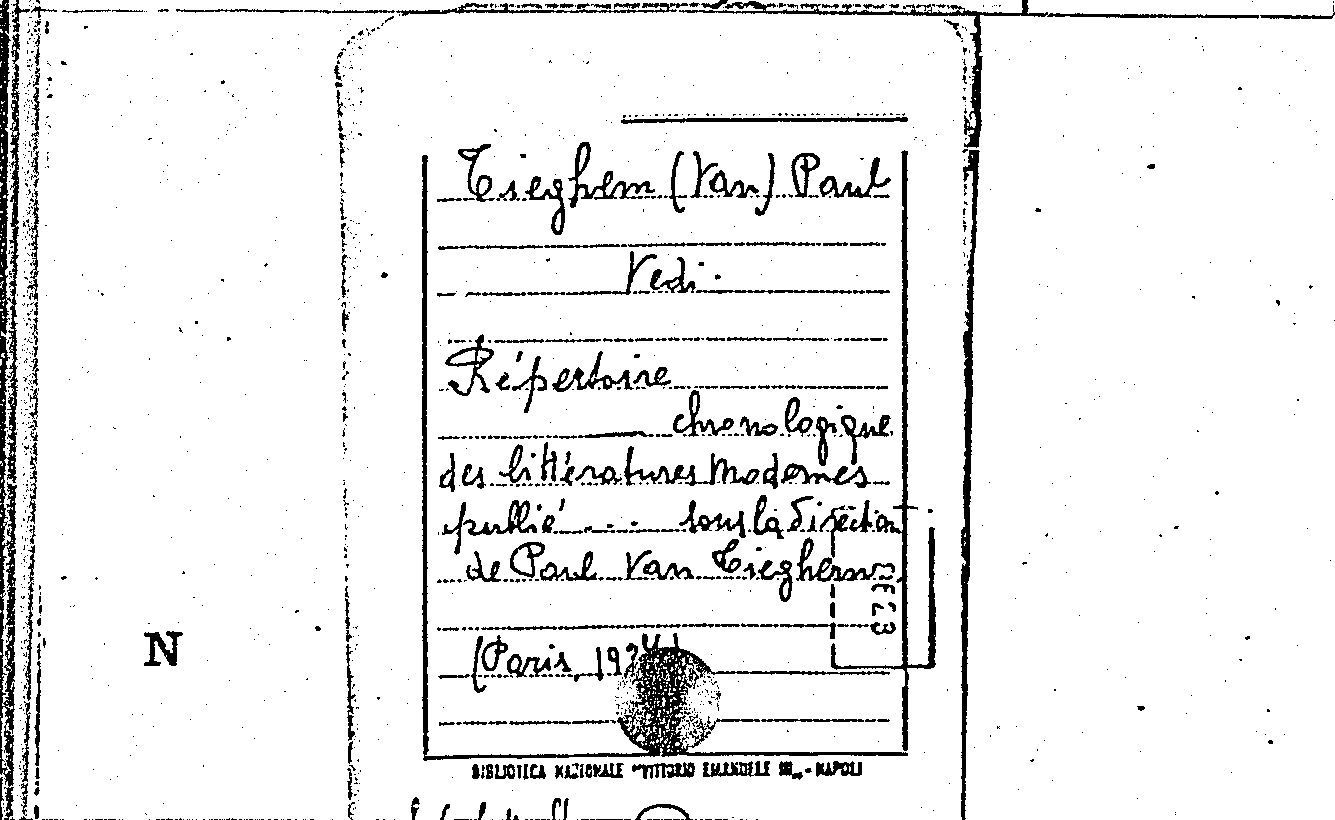 Tieghem (Van) Paul
Vedi:
Répertoire
chronologique
des littératures modernes
publié . . . sous la direction
de Paul Van Tieghem
(Paris,
N
BIBLIOTECA NAZIONALE "VITTORIO EMANUELE III" - NAPOLI